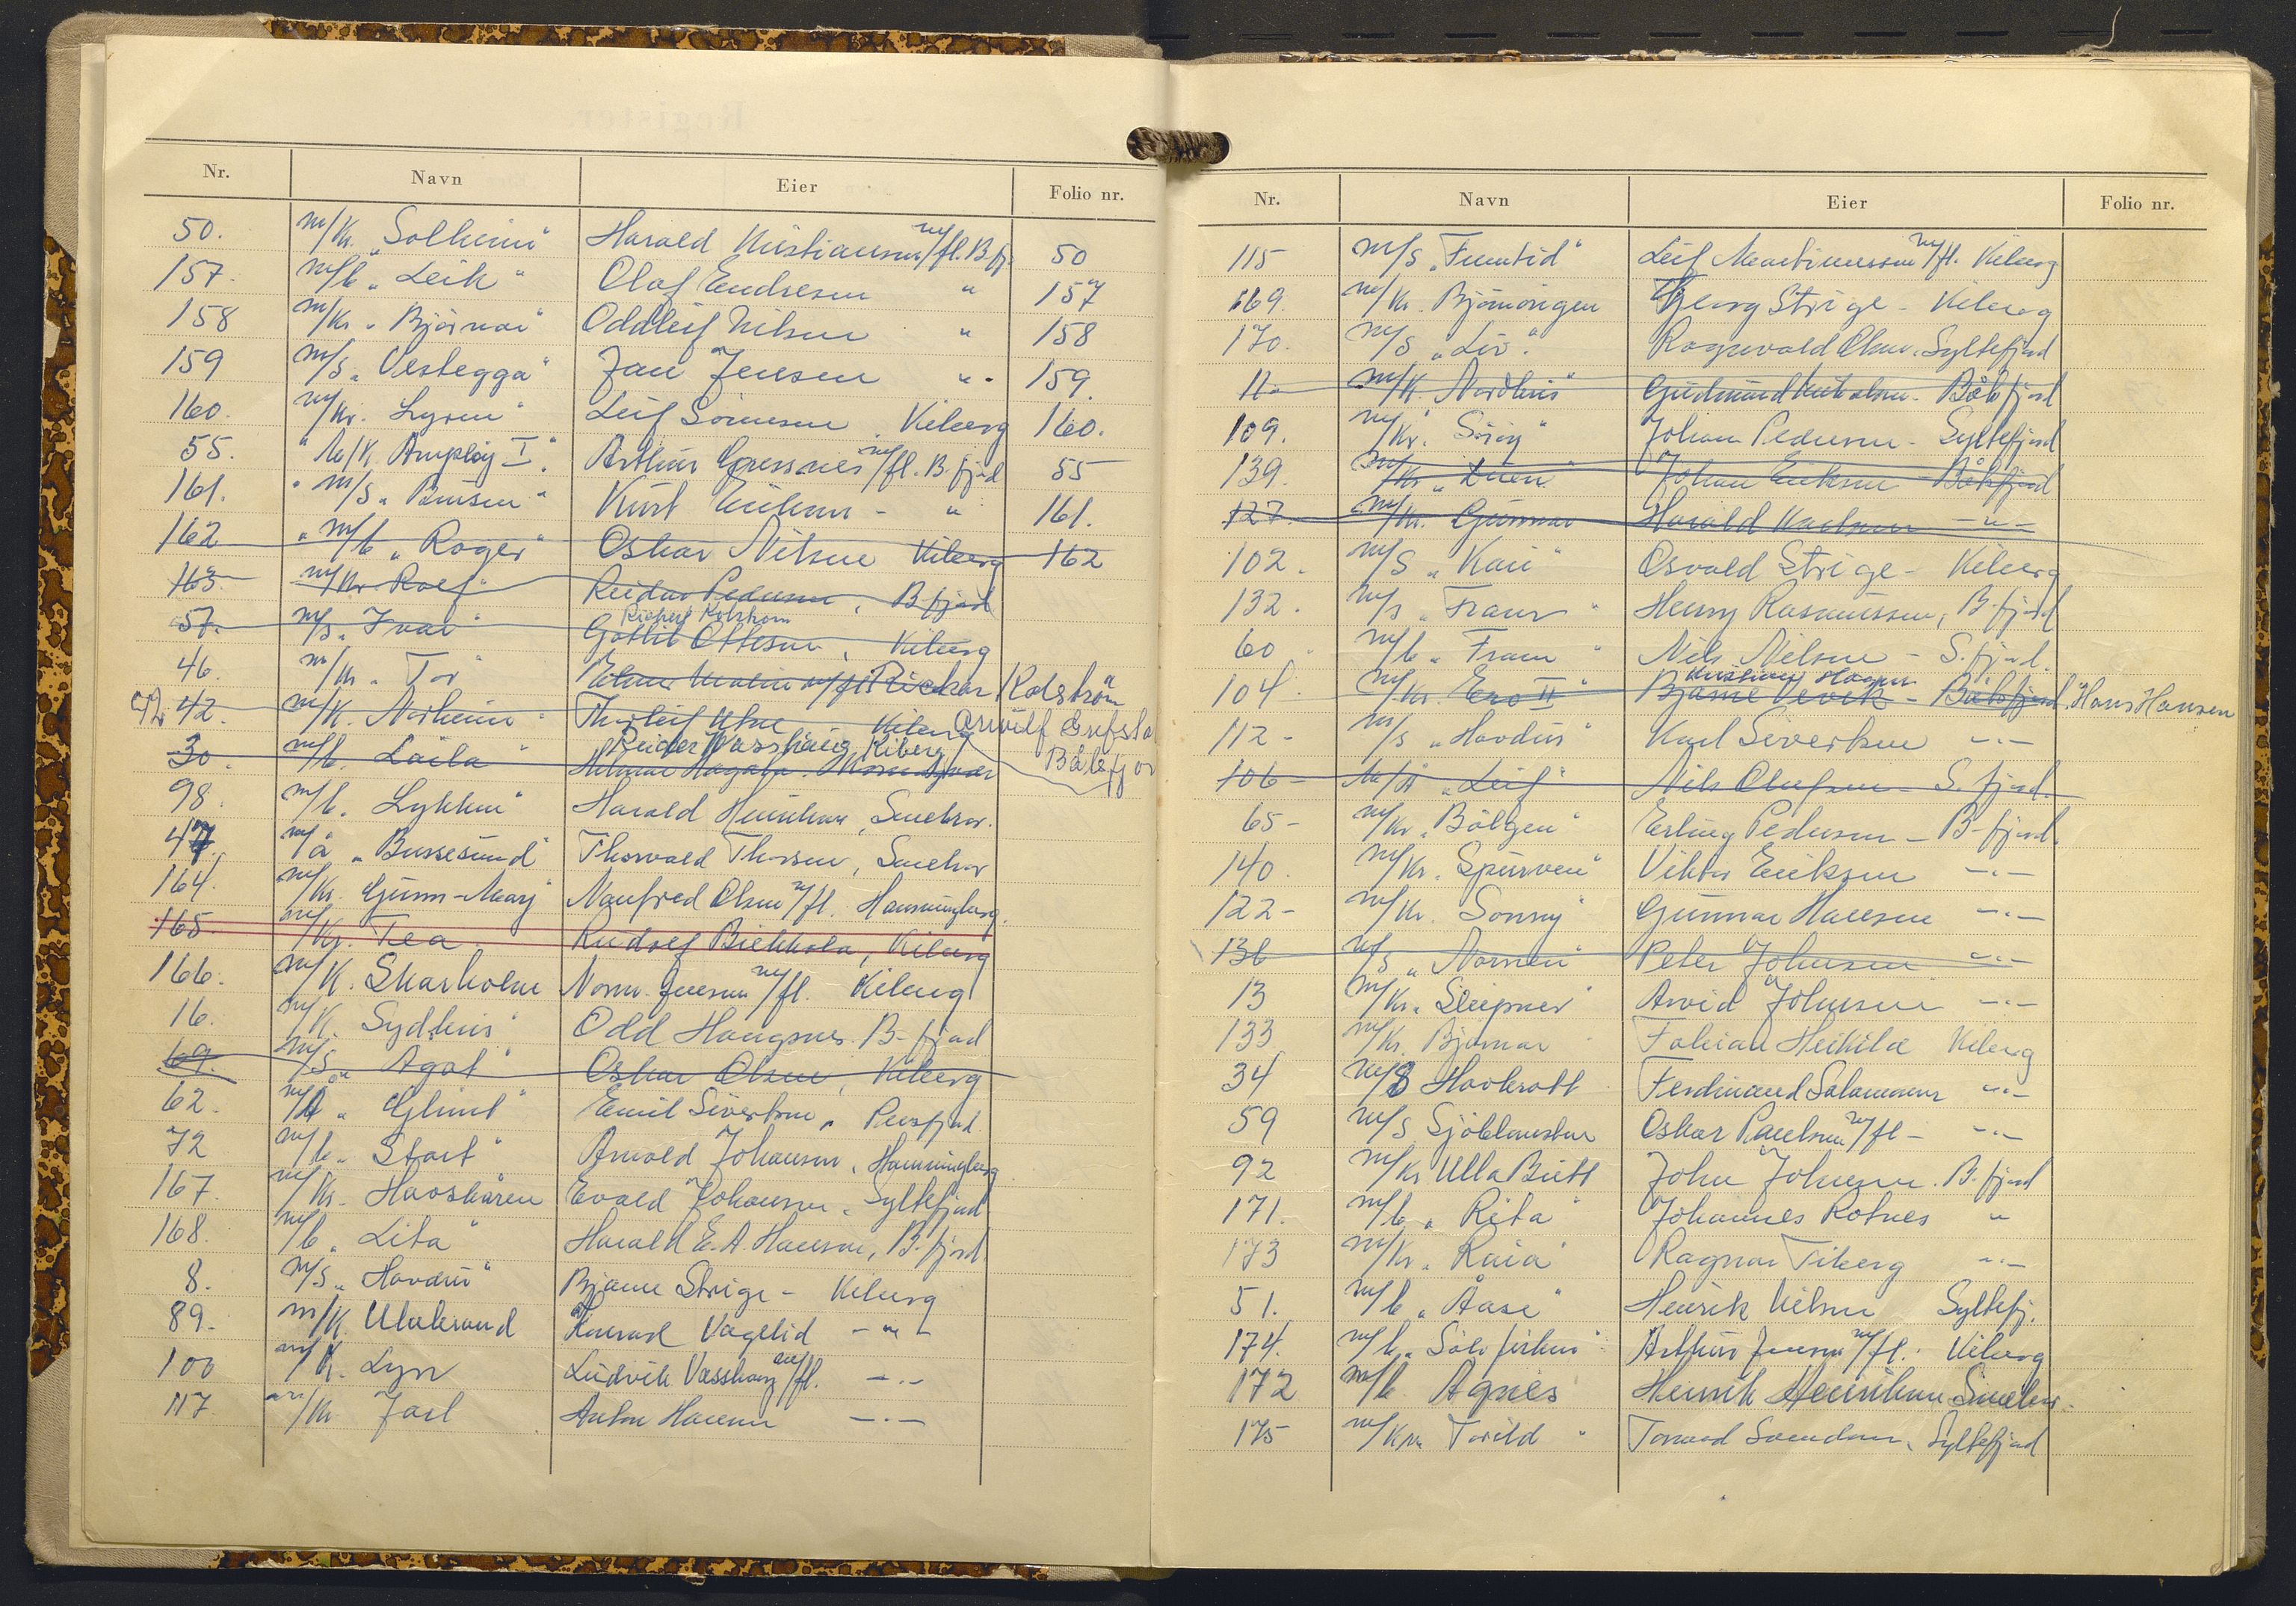 Nr. Navn Eier Folio nr.
50. m/kr. "Solheim" Harald Kristiansen m/fl. B.fj. 50
157. m/b "Leik" Olaf Endresen " 157
158 m/kr. "Björnar" Oddleif Nilsen " 158
159 m/s "Vestegga" Jan Jensen " 159.
160. m/kr. Lyren" Leif Sörnesen Kiberg 160.
55. "M/K. Amplöy I". Arthur Gressnes m/fl. B.fjord 55
161. m/s "Brusen" Kurt Eriksen - " 161.
162 "m/b "Roger" Oskar Nilsen Kiberg 162
163 m/kr Rolf Reidar Pedersen, B.fjord
Richard Kolstrøm
57. m/s. "Ivar" Gotlib Ottesen, Kiberg
46. m/kr. "Tor" m/fl Rickar Kolström
42. m/K. Norheim Thorleif Kiberg
Reidar Vasshaug, Kiberg Båtsfjor
30. m/b. "Laila" Hilmar
98. m/b. Lykken" Harald Henriksen, Smelror.
47. m/å "Bussesund" Thorvald Thorsen, Smelror
164. m/kr. Gunn-Mary Manfred Olsen m/fl. Hamningberg.
165. m/kr. Tea Rudolf Biekkola, Kiberg
166. m/K. Skarholm Norm. Jensen m/fl. Kiberg
16. m/K. Sydhus" Odd Haugsnes. B-fjord
69. m/s "Agat" Oskar Olsen, Kiberg
62. m/å "Glimt" Emil Sivertsen, Persfjord.
72 m/b. "Start" Arnold Johansen, Hamningberg
167. m/kr. Havskåren Evald Johansen, Syltefjord
168. m/b "Lita" Harald E. A. Hansen, B.fjord.
8. m/s "Havdur" Bjarne Strige - Kiberg
89. m/K. Ulabrand Konrad Vagelid - " -
100 m/k. Lyn Ludvik Vasshaug m/fl. - " -
117 m/kr Jarl Anton Hansen - " -
Nr. Navn Eier Folio nr.
115 m/s "Framtid" Leif Martinussen m/fl. Kiberg
169. m/kr. Björnungen Georg Strige - Kiberg
170. m/s "Liv". Ragnvald Olsen. Syltefjord
11. m/K. Nordhus" Gudmund Båtsfjord
109. m/kr. Johan Pedersen - Syltefjord
139. m/kr. Johan Eriksen - Båtsfjord
127. m/kr. Gunnar Harald Karlsen - " -
102. m/s "Kari" Osvald Strige - Kiberg
132. m/s "Frans" Henry Rasmussen, B.fjord
60 m/b "Fram" Nils Nilsen - S.fjord.
Kristian Hansen
104. m/kr. Ero II" Bjarne Vevik - Båtsfjord. Hans Hansen
112 - m/s "Havdur" Karl Sivertsen - " -
106 - m/å "Leif" Nils Olufsen - S. fjord.
65 - m/kr. "Bölgen" Erling Pedersen - B-fjord.
140. m/kr. "Spurven" Viktor Eriksen - " -
122 - m/kr. Sonny" Gunnar Hansen - " -
136 m/s "Nornen" Peter Johnsen - " -
13 m/kr. "Sleipner" Arvid Johnsen - " -
133 m/kr. Bjørnar Fabian Heikila Kiberg
34 m/s Havkrott Ferdinand Salamonsen - " -
59 m/s Sjöblomsten Oskar Paulsen m/fl - - " -
92 m/kr Ulla Britt John Johnsen. B. fjord
171. m/b "Rita" Johannes Rotnes "
173 m/kr. "Raia" Ragnar Tiberg - " -
51. m/b "Åase" Henrik Nilsen Syltefj.
174. m/b "Sölvfisken" Arthur Jensen m/fl. Kiberg
172 m/b Agnes Henrik Henriksen Smelror.
175 m/kr. "Torild" Torvard Svendsen, Syltefjord